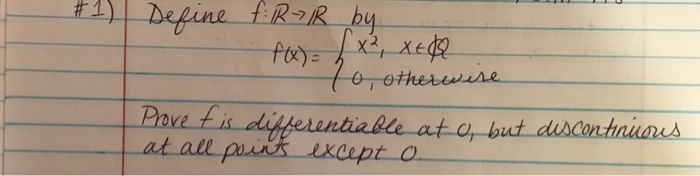 #1) Define f: ℝ→ℝ by
f(x) = { x², x∈ℚ
0, otherwise
Prove f is differentiable at 0, but discontinuous
at all points except 0.